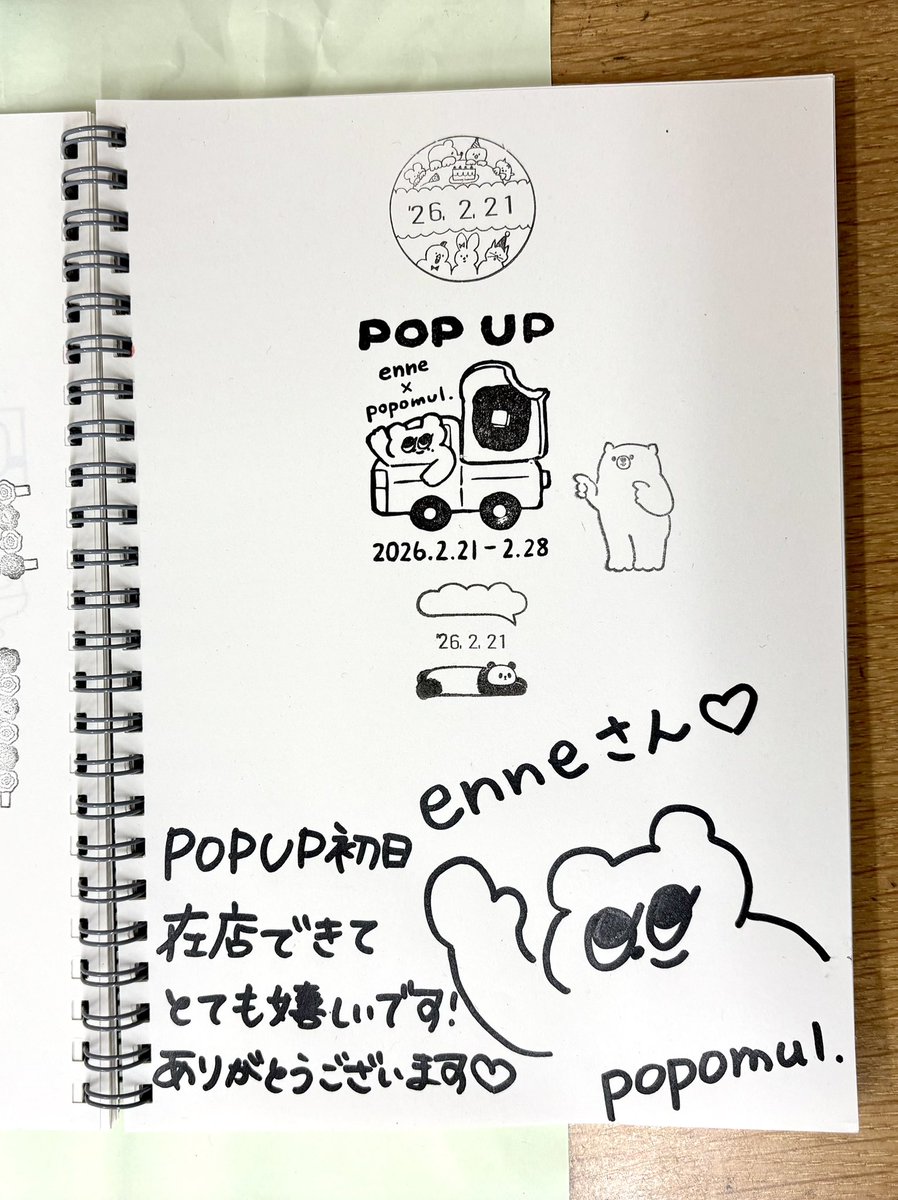 '26. 2. 21
POP UP
enne
×
popomul.
2026.2.21-2.28
'26. 2. 21
enneさん♡
POPUP初日
在店できて
とても嬉しいです!
ありがとうございます♡
popomul.